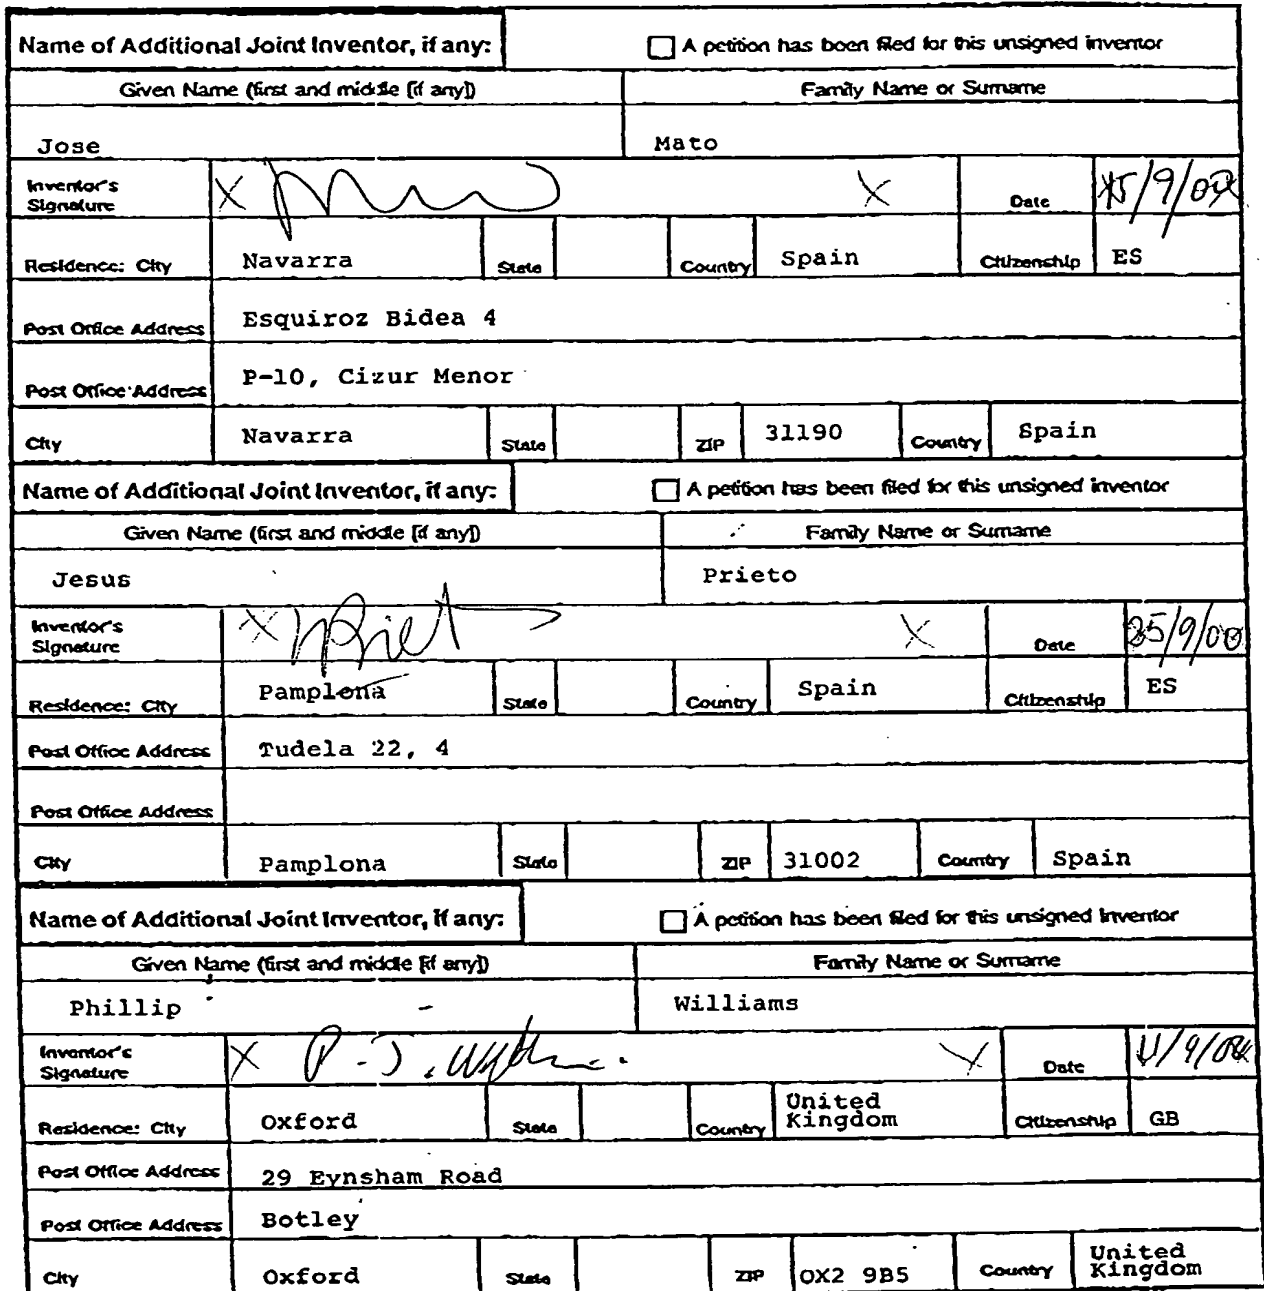 Name of Additional Joint Inventor, if any: A petition has been filed for this unsigned inventor
Given Name (first and middle [if any]) Family Name or Surname
Jose Mato
Inventor's Signature X X Date
Residence: City Navarra State Country Spain Citizenship ES
Post Office Address Esquiroz Bidea 4
Post Office Address P-10, Cizur Menor
City Navarra State ZIP 31190 Country Spain
Name of Additional Joint Inventor, if any: A petition has been filed for this unsigned inventor
Given Name (first and middle [if any]) Family Name or Surname
Jesus Prieto
Inventor's Signature X X Date 25/9/00
Residence: City Pamplona State Country Spain Citizenship ES
Post Office Address Tudela 22, 4
Post Office Address
City Pamplona State ZIP 31002 Country Spain
Name of Additional Joint Inventor, if any: A petition has been filed for this unsigned inventor
Given Name (first and middle [if any]) Family Name or Surname
Phillip Williams
Inventor's Signature X P.J. X Date
Residence: City Oxford State Country United Kingdom Citizenship GB
Post Office Address 29 Eynsham Road
Post Office Address Botley
City Oxford State ZIP OX2 9B5 Country United Kingdom